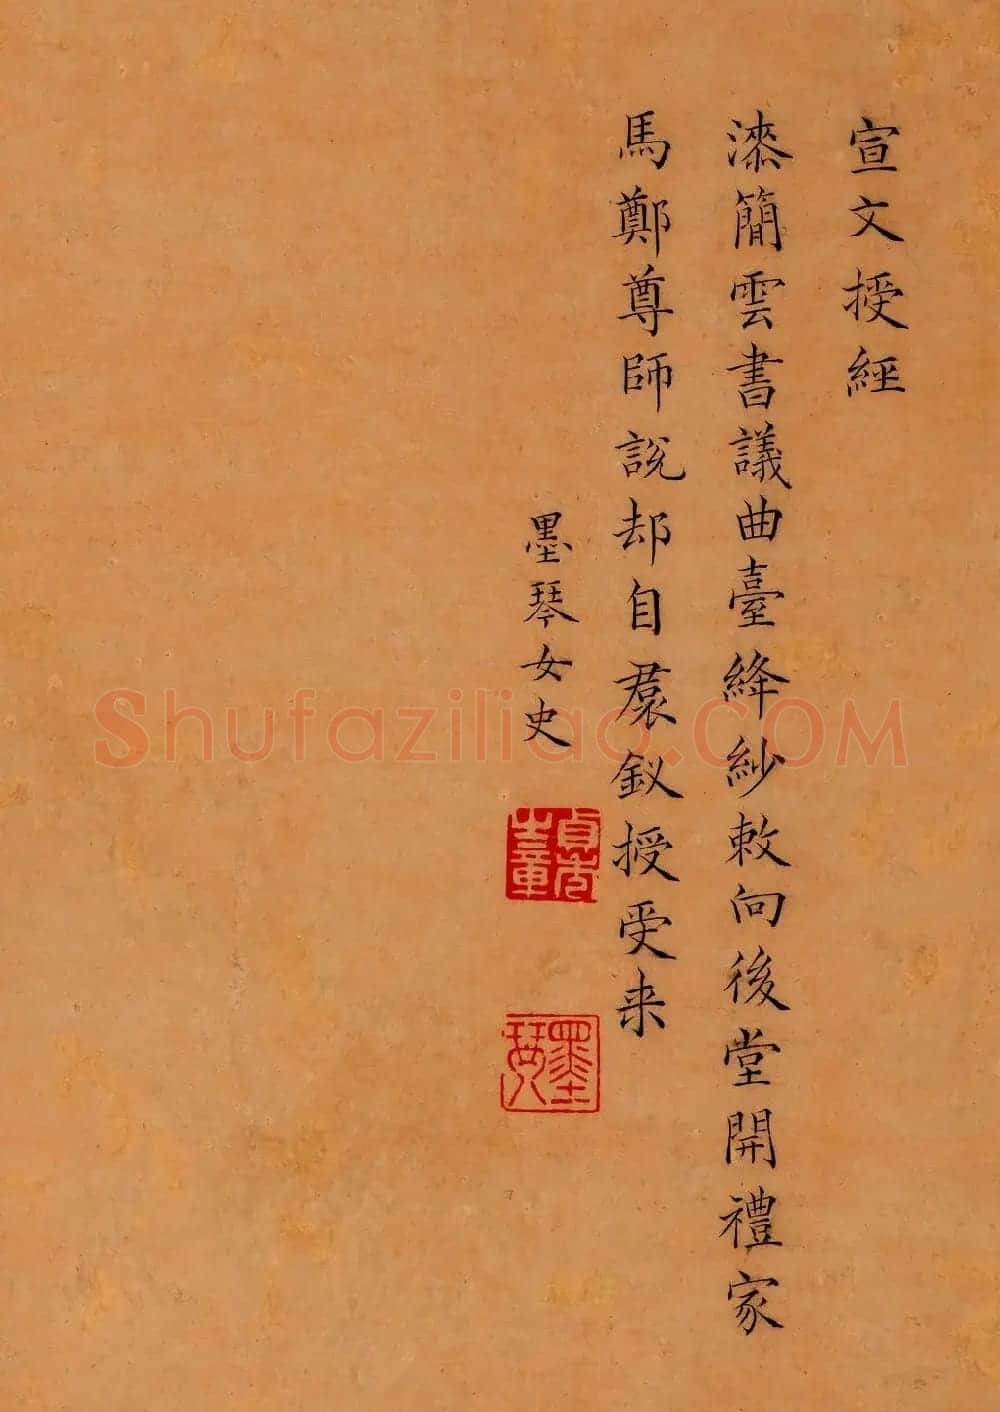 宣文授經
漆簡雲書議曲臺絳紗敕向後堂開禮家
馬鄭尊師說却自裠釵授受来
墨琴女史
墨琴
Shufaziliao.COM